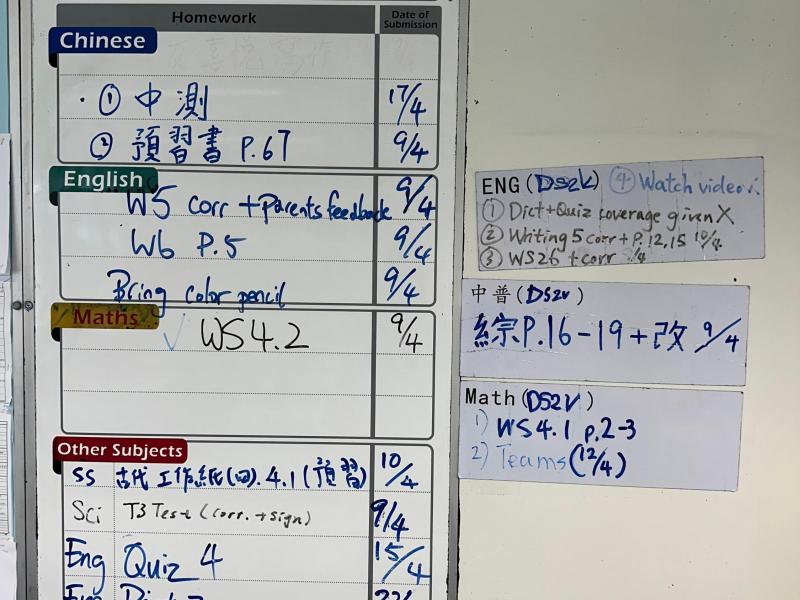 Homework
Date of Submission
Chinese
· ① 中測 17/4
② 預習書 P.67 9/4
English
W5 corr + Parents feedback 9/4
W6 P.5 9/4
Bring color pencil 9/4
Maths
✓ WS4.2 9/4
Other Subjects
SS 古代工作紙(四).4.1(預習) 10/4
Sci T3 Test (corr.+sign) 9/4
Eng Quiz 4 15/4
ENG(DS2k) ④ Watch video
① Dict+Quiz coverage given X
② Writing 5 corr + P.12,15 10/4
③ WS26 + corr
中普(DS2v)
綜P.16-19+改 9/4
Math(DS2V)
1) WS4.1 p.2-3
2) Teams(12/4)